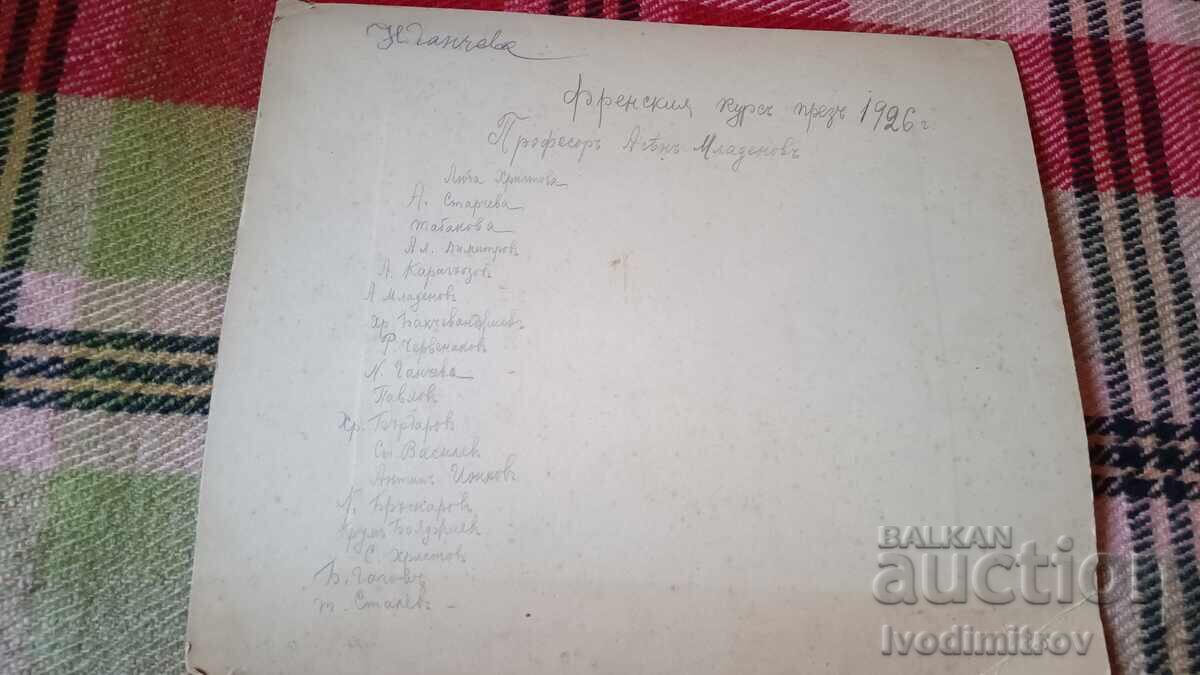 Н. Ганчева
Френския курсъ презъ 1926 г.
Професоръ Асѣнъ Младеновъ
Христова
А. Старчева
Табакова
Ал. Димитров
Карагьозовъ
А Младеновъ
Хр. Бакчевандживъ
Р. Червенковъ
Н. Ганчева
Павловъ
Хр. Бърбаров
Василевъ
Цонковъ
Бръчкаровъ
Крумъ Бояджиев
С. Христовъ
Б. Гаговъ
Сталевъ
BALKAN
auction
Ivodimitrov